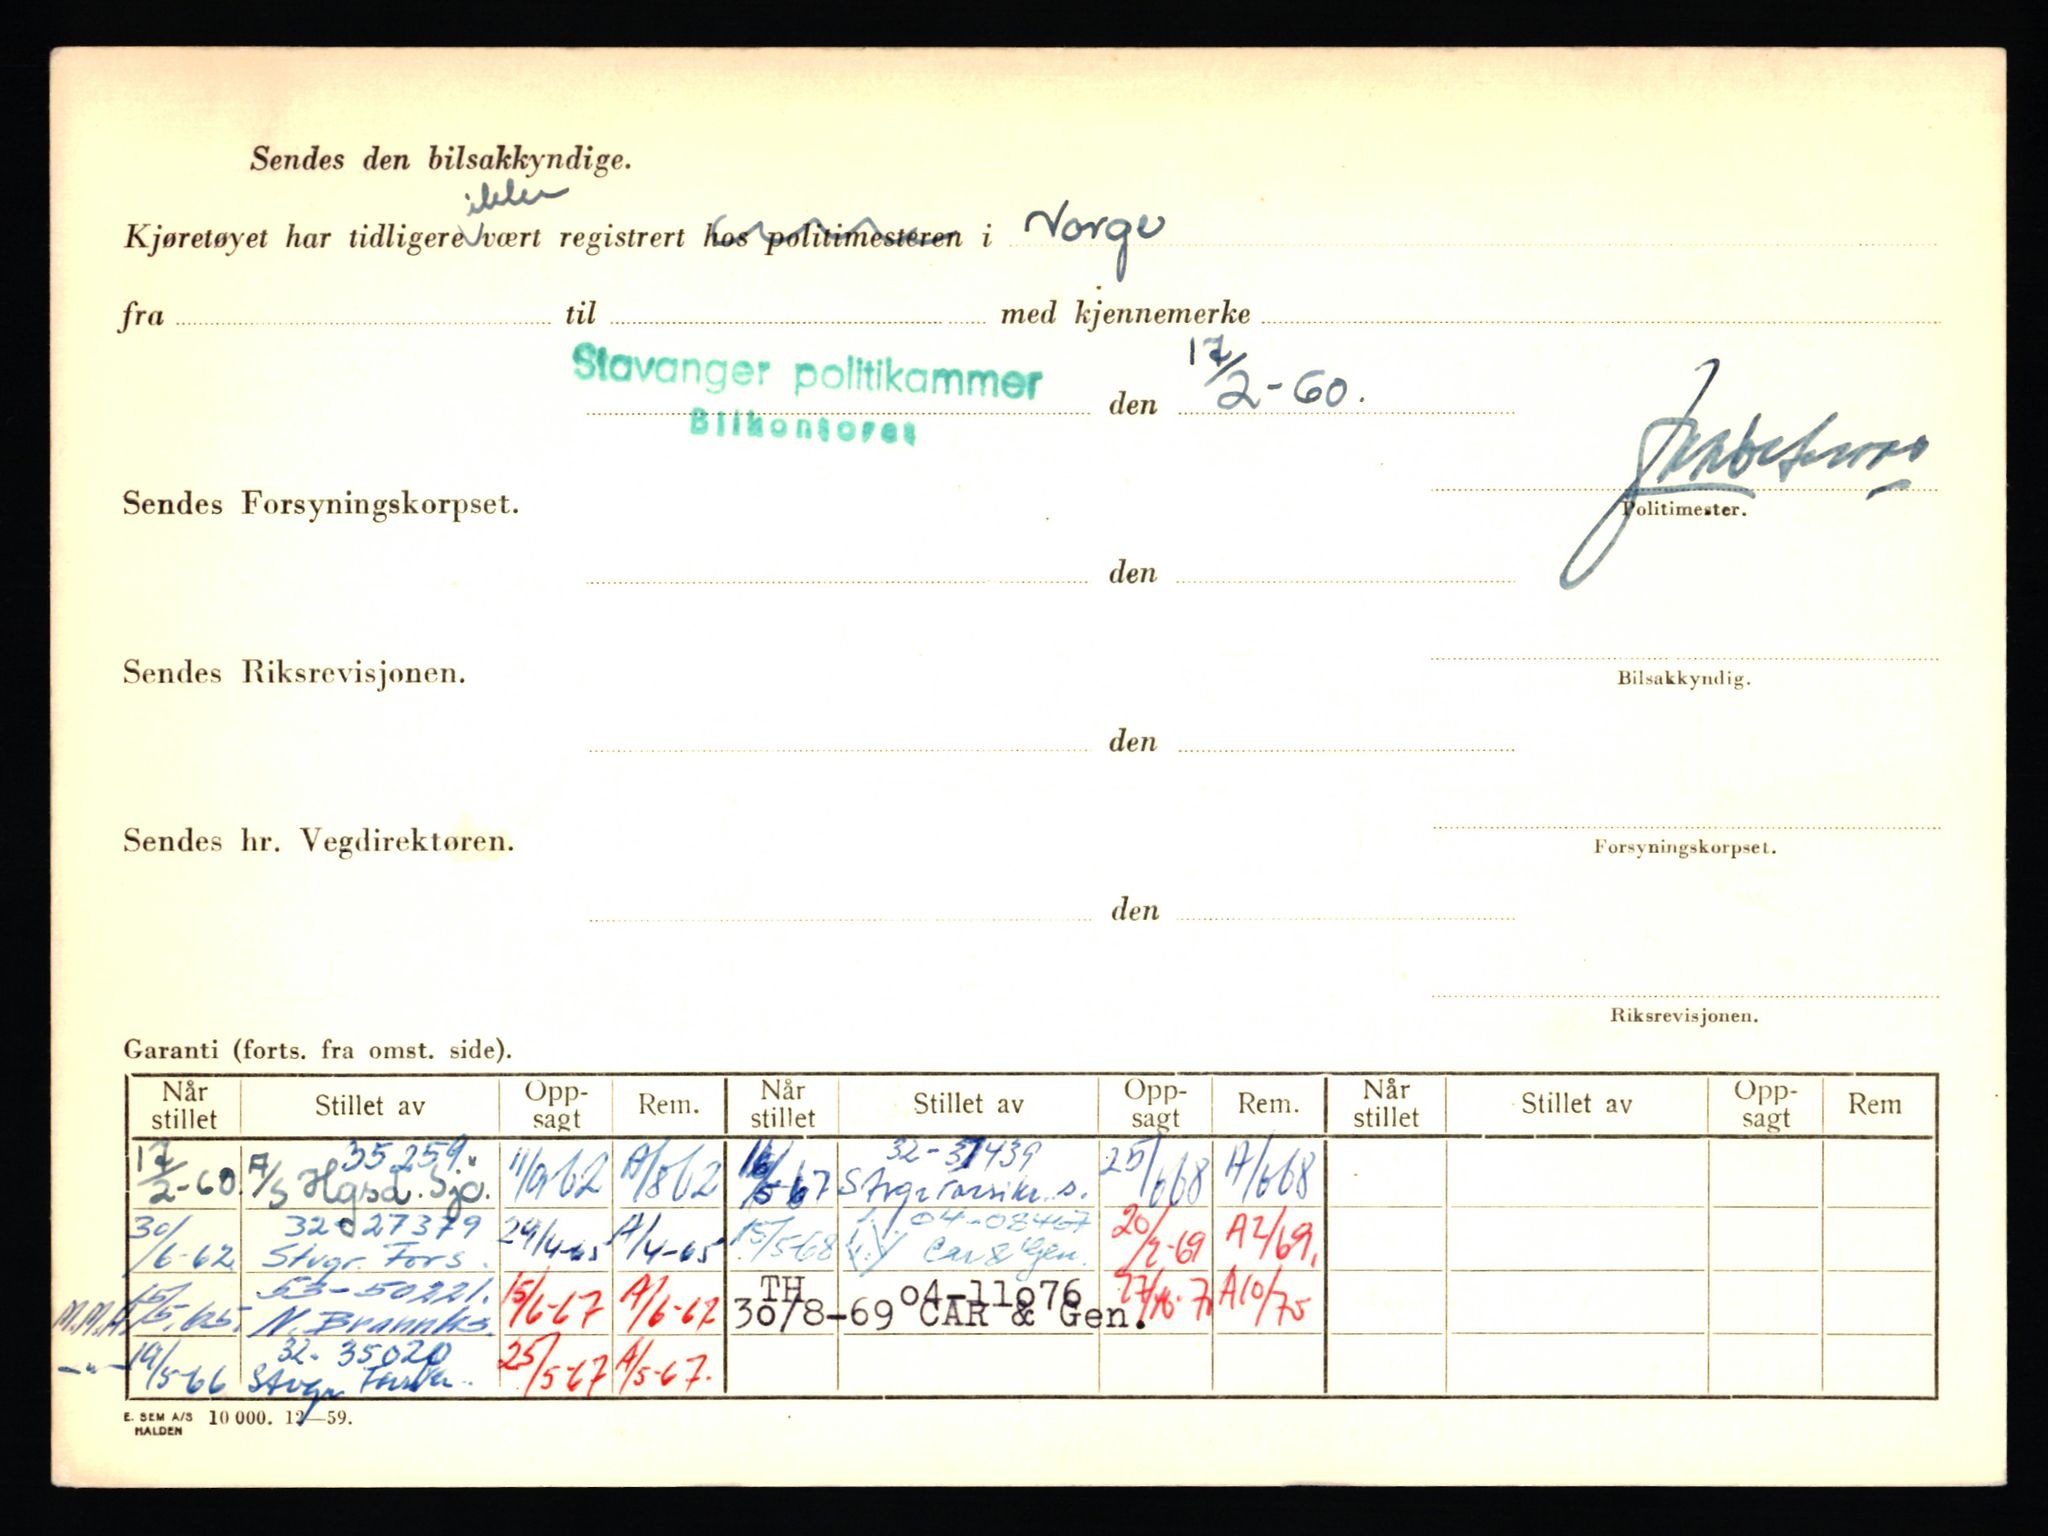 Sendes den bilsakkyndige.
ikke
Kjøretøyet har tidligere vært registrert hos politimesteren i Norge
fra til med kjennemerke
Stavanger politikammer
Bilkontoret
den 17/2-60.
Sendes Forsyningskorpset.
Politimester.
den
Sendes Riksrevisjonen.
Bilsakkyndig.
den
Sendes hr. Vegdirektøren.
Forsyningskorpset.
den
Riksrevisjonen.
Garanti (forts. fra omst. side).
Når stillet Stillet av Opp-sagt Rem. Når stillet Stillet av Opp-sagt Rem. Når stillet Stillet av Opp-sagt Rem
17/2-60. 35259. A/S Hgsd. Sjø. 11/9 62 A/8 62 16/5 67 32-37439 Stvgr Forsikr. s. 25/6 68 A/6 68
30/6-62 32-27379 Stvgr. Fors. 29/4-65 A/4-65 15/5-68 04-08467 Car & Gen. 20/2-69 A2/69.
M.M.A. 15/5.65. 53-50221. N. Brannks. 15/6-67 A/6-67 TH 30/8-69 04-11076 CAR & Gen. 27/10-70 A10/70
-"- 19/5-66 32-35020 Stvgr Forsikr. 25/5-67 A/5-67.
E. SEM A/S 10 000. 12—59.
HALDEN